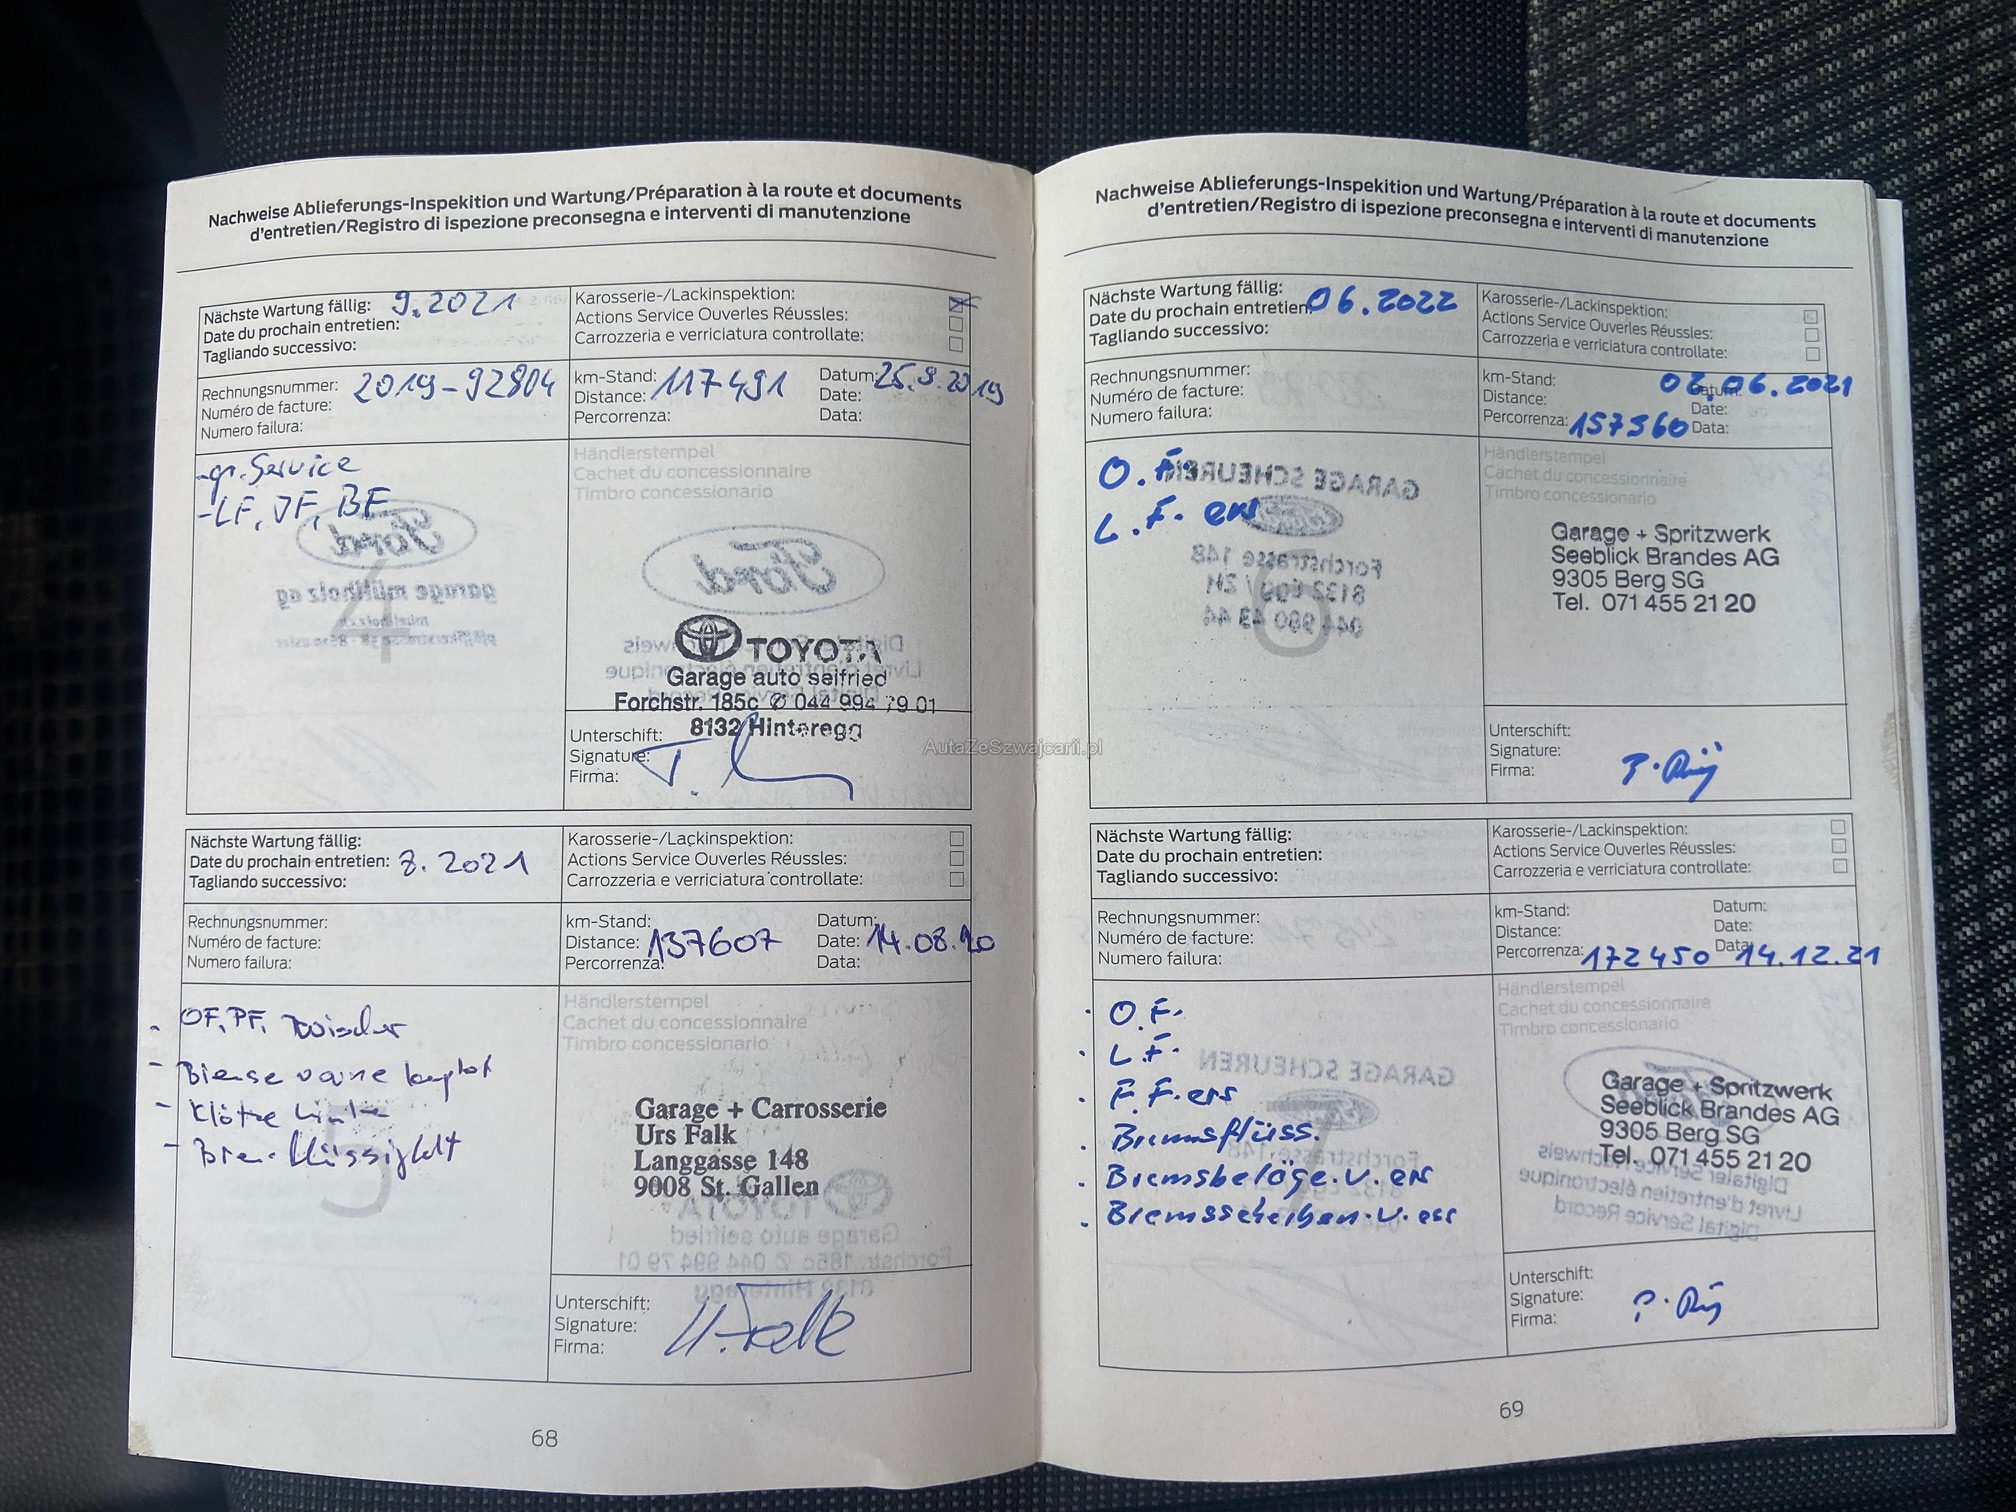 Nachweise Ablieferungs-Inspekition und Wartung/Préparation à la route et documents
d'entretien/Registro di ispezione preconsegna e interventi di manutenzione
Nächste Wartung fällig: 9.2021
Date du prochain entretien:
Tagliando successivo:
Karosserie-/Lackinspektion:
Actions Service Ouverles Réussles:
Carrozzeria e verriciatura controllate:
Rechnungsnummer: 2019-92804
Numéro de facture:
Numero failura:
km-Stand: 117491 Datum: 25.9.2019
Distance: Date:
Percorrenza: Data:
-gr. Service
-LF, JF, BF
4
Händlerstempel
Cachet du concessionnaire
Timbro concessionario
TOYOTA
Garage auto seifried
Forchstr. 185c ✆ 044 994 79 01
8132 Hinteregg
Unterschift:
Signature:
Firma:
Nächste Wartung fällig:
Date du prochain entretien: 8.2021
Tagliando successivo:
Karosserie-/Lackinspektion:
Actions Service Ouverles Réussles:
Carrozzeria e verriciatura controllate:
Rechnungsnummer:
Numéro de facture:
Numero failura:
km-Stand: Datum:
Distance: 137607 Date: 14.08.20
Percorrenza: Data:
- OF, PF,
- 
- Klötze
- 
5
Händlerstempel
Cachet du concessionnaire
Timbro concessionario
Garage + Carrosserie
Urs Falk
Langgasse 148
9008 St. Gallen
Unterschift:
Signature: U. Falk
Firma:
68
Nachweise Ablieferungs-Inspekition und Wartung/Préparation à la route et documents
d'entretien/Registro di ispezione preconsegna e interventi di manutenzione
Nächste Wartung fällig:
Date du prochain entretien: 06.2022
Tagliando successivo:
Karosserie-/Lackinspektion:
Actions Service Ouverles Réussles:
Carrozzeria e verriciatura controllate:
Rechnungsnummer:
Numéro de facture:
Numero failura:
km-Stand: Datum: 02.06.2021
Distance: Date:
Percorrenza: 157360 Data:
O.F.
L.F. ers
6
Händlerstempel
Cachet du concessionnaire
Timbro concessionario
Garage + Spritzwerk
Seeblick Brandes AG
9305 Berg SG
Tel. 071 455 21 20
Unterschift:
Signature:
Firma:
AutaZeSzwajcarii.pl
Nächste Wartung fällig:
Date du prochain entretien:
Tagliando successivo:
Karosserie-/Lackinspektion:
Actions Service Ouverles Réussles:
Carrozzeria e verriciatura controllate:
Rechnungsnummer:
Numéro de facture:
Numero failura:
km-Stand: Datum:
Distance: Date:
Percorrenza: 172450 Data: 14.12.21
. O.F.
. L.F.
. F.F. ers
. Bremsflüss.
. Bremsbeläge.v.ers
. Bremsscheiben.v.ers
7
Händlerstempel
Cachet du concessionnaire
Timbro concessionario
Garage + Spritzwerk
Seeblick Brandes AG
9305 Berg SG
Tel. 071 455 21 20
Unterschift:
Signature:
Firma:
69